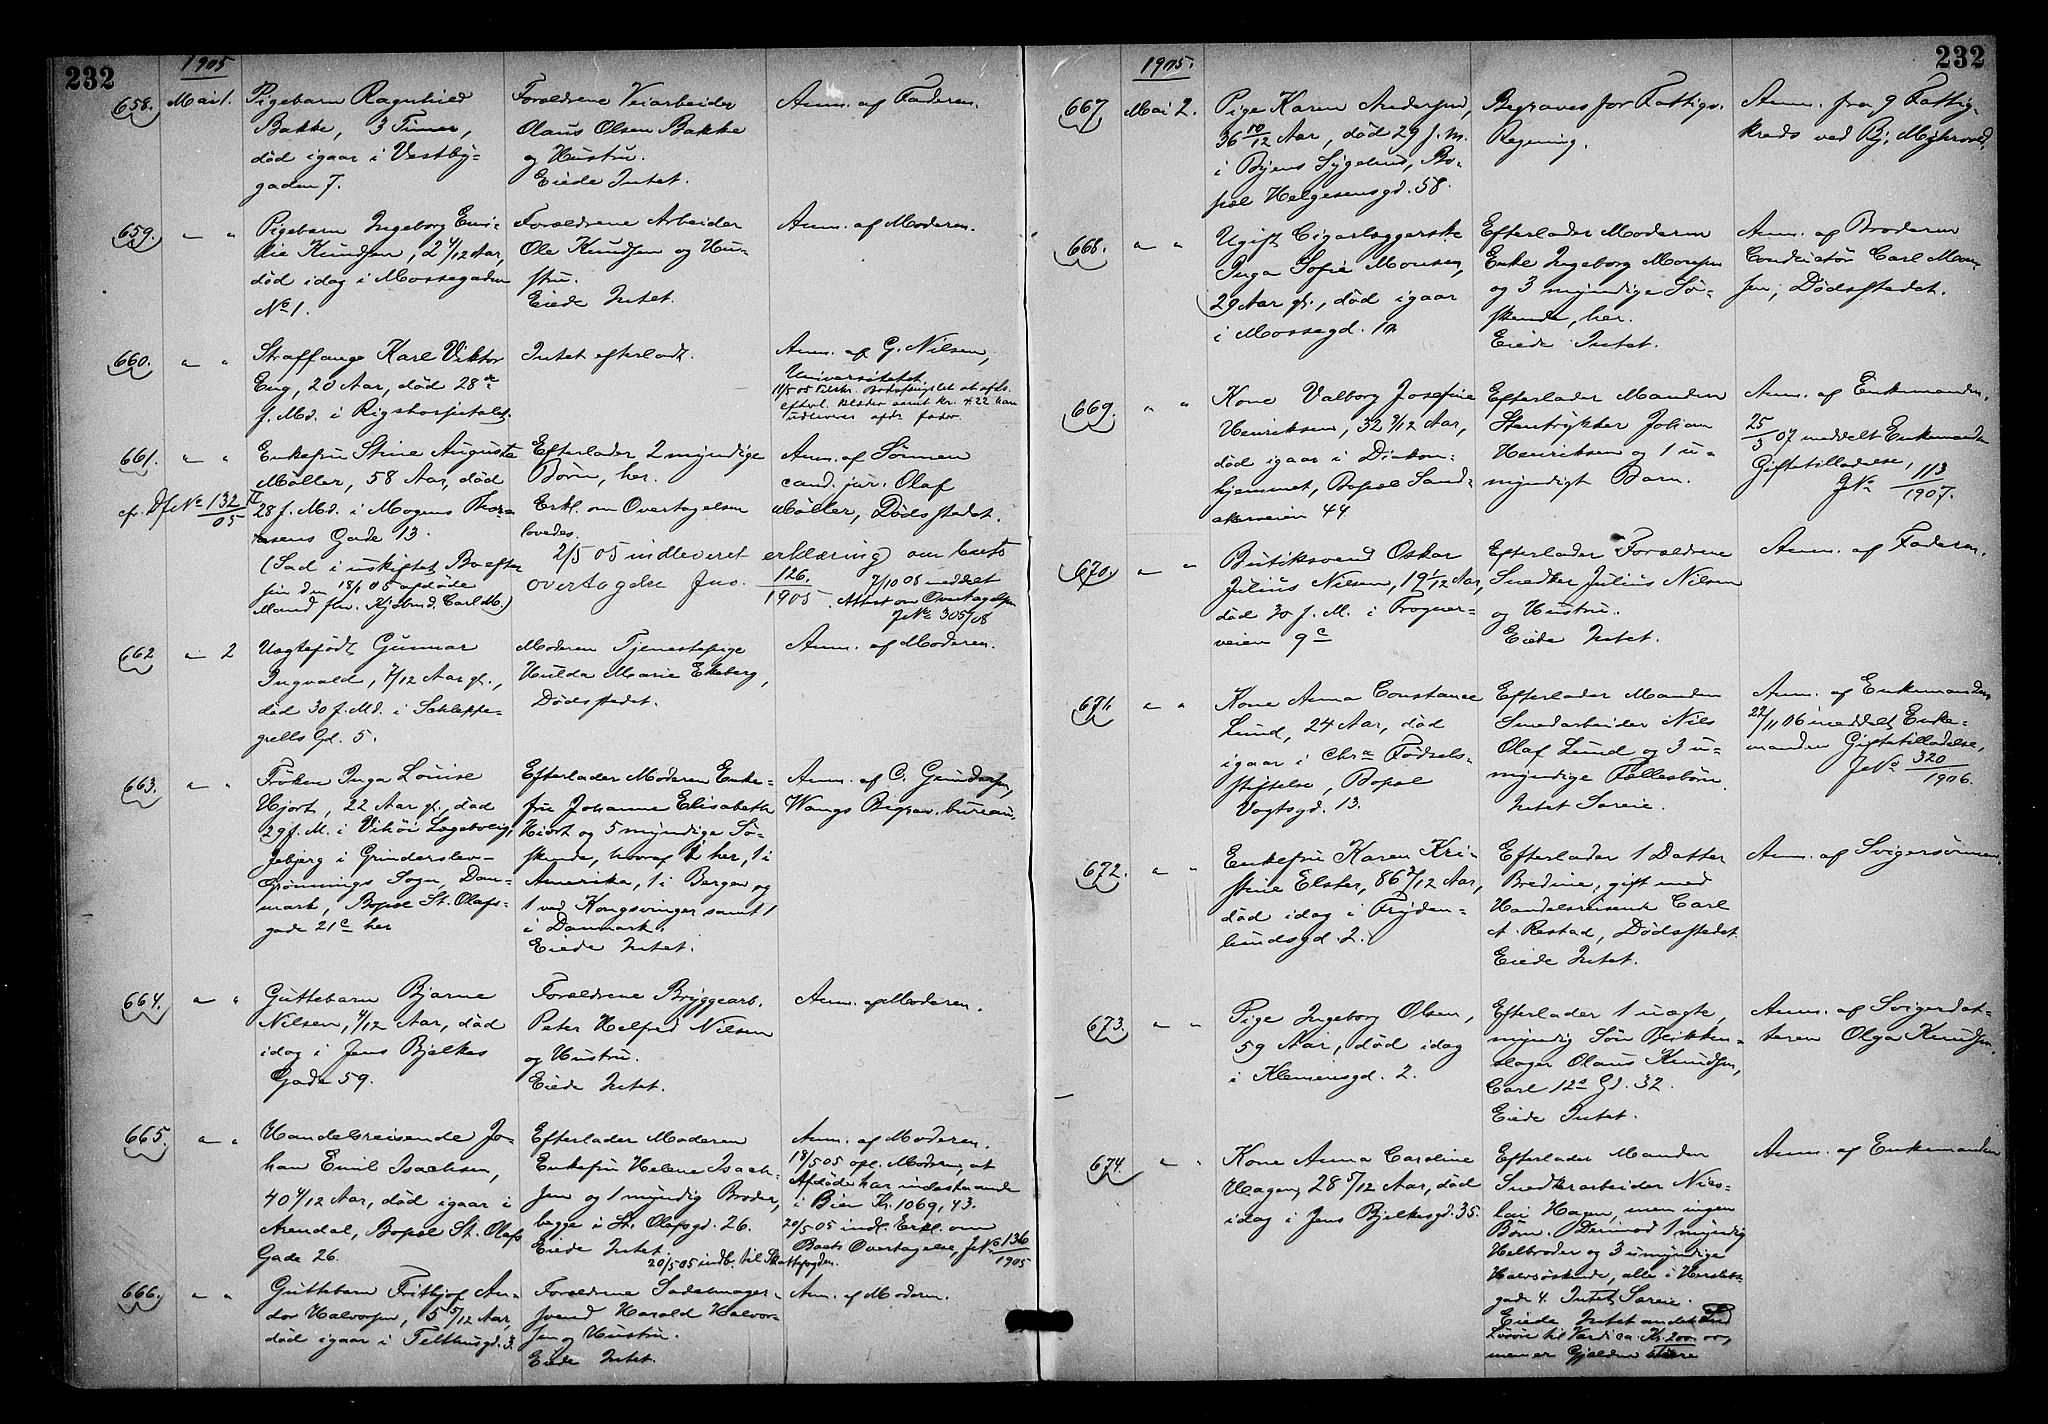 232
1905
658.
Mai 1.
Pigebarn Ragnhild
Bakke, 3 Timer,
død igaar i Vestby-
gaden 7.
Forældrene Veiarbeider
Olaus Olsen Bakke
og Hustru.
Eiede Intet.
Anm. af Faderen.
659.
" "
Pigebarn Ingeborg Emi-
lie Knudsen, 2 4/12 Aar,
død idag i Mossegaden
No 1.
Forældrene Arbeider
Ole Knudsen og Hu-
stru.
Eiede Intet.
Anm. af Moderen.
660.
" "
Straffange Karl Viktor
Eng, 20 Aar, død 28de
f. Md. i Rigshospitalet.
Intet efterladt.
Anm. af G. Nilsen,
Universitetet
11/5 05 Bodsfængslet at afdø.
efterl. klæder samt kr. 4.22 kan
udleveres afdr fader.
661.
" "
cfr. Df No 132/05 II
Enkefru Stine Augusta
Møller, 58 Aar, død
28 f. Md. i Mogens Thor-
sens Gade 13.
(Sad i uskiftet Bo efter
sin den 18/1 05 afdøde
Mand fhv. Kjøbmd. Carl M.)
Efterlader 2 myndige
Børn, her.
Erkl. om Overtagelsen
lovedes.
2/5 05 indleveret erklæring om boets
overtagelse Jno. 126./1905
Anm. af Sønnen
cand. jur. Olaf
Møller, Dødsstedet.
7/10 08 meddelt
Attest om Overtagelsen
J No 305/08
662
" 2
Uægtefødt Gunnar
Ingvald, 7/12 Aar gl.,
død 30 f. Md. i Schleppe-
grells Gd. 5.
Moderen Tjenestepige
Hulda Marie Ekeberg,
Dødsstedet.
Anm. af Moderen.
663.
" "
Frøken Inga Louise
Hjort, 22 Aar gl., død
29 f. M. i Vihøi Lægebolig,
Jebjerg i Grinderslev-
Grønnings Sogn, Dan-
mark, Bopæl St. Olafs-
gade 21c her
Efterlader Moderen Enke-
fru Johanne Elisabeth
Hjort og 5 myndige Sø-
skende, hvoraf 1 her, 1 i
Amerika, 1 i Bergen, og
1 ved Kongsvinger samt 1
i Danmark.
Eiede Intet.
Anm. af C. Gundersen,
Wangs Begrav. bureau.
664.
" "
Guttebarn Bjarne
Nilsen, 4/12 Aar, død
idag i Jens Bjelkes
Gade 59.
Forældrene Bryggearb.
Peter Helfred Nilsen
og Hustru.
Eiede Intet.
Anm. af Moderen.
665.
" "
Handelsreisende Jo-
han Emil Isachsen,
40 4/12 Aar, død igaar i
Arendal, Bopæl St. Olafs
Gade 26.
Efterlader Moderen
Enkefru Helene Isach-
sen og 1 myndig Broder,
begge i St. Olafsgd. 26.
Eiede Intet.
20/5 05 indb. til Skattefogden.
Anm. af Moderen.
18/5 05 opl. Moderen, at
Afdøde har indestaaende
i Bien Kr. 1069,43.
20/5 05 indl. Erkl. om
Boets Overtagelse, J No 136/1905
666.
" "
Guttebarn Frithjof An-
dor Halvorsen, 5 5/12 Aar,
død igaar i Telthusgd. 3.
Forældrene Sadelmager-
svend Harald Halvor-
sen og Hustru.
Eiede Intet.
Anm. af Moderen.
232
1905.
667
Mai 2.
Pige Karen Andersen,
36 10/12 Aar, død 29 f. M.
i Byens Sygehus, Bo-
pæl Helgesensgd. 58.
Begraves for Fattigv.
Regning.
Anm. fra 9 Fattig-
kreds ved Bj. Myhrvold.
668.
" "
Ugift Cigarlæggerske
Inga Sofie Monsen,
29 Aar gl., død igaar
i Mossegd. 1
Efterlader Moderen
Enke Ingeborg Monsen
og 3 myndige Sø-
skende, her.
Eiede Intet.
Anm. af Broderen
Conductør Carl Mon-
sen, Dødsstedet.
669.
" "
Kone Valborg Josefine
Henriksen, 32 9/12 Aar,
død igaar i Diakon-
hjemmet, Bopæl Sand-
akerveien 44
Efterlader Manden
Stentrykker Johan
Henriksen og 1 u-
myndigt Barn.
Anm. af Enkemanden.
25/3 07 meddelt Enkemanden
Giftetilladelse,
J No 113/1907.
670.
" "
Butiksvend Oskar
Julius Nilsen, 19 1/12 Aar,
død 30 f. M. i Frogner-
veien 9c
Efterlader Forældrene
Snedker Julius Nilsen
og Hustru.
Eiede Intet.
Anm. af Faderen.
671.
" "
Kone Anna Constance
Lund, 24 Aar, død
igaar i Chra Fødsels-
stiftelse, Bopæl
Vogtsgd. 13.
Efterlader Manden
Smedarbeider Nils
Olaf Lund og 3 u-
myndige Fællesbørn.
Intet Særeie.
Anm. af Enkemanden
22/11 06 meddelt Enke-
manden Giftetilladelse,
J No 320/1906.
672.
" "
Enkefru Karen Kri-
stine Elster, 86 2/12 Aar,
død idag i Fryden-
lundsgd. 2.
Efterlader 1 Datter
Bredine, gift med
Handelsreisende Carl
A. Restad, Dødsstedet.
Eiede Intet.
Anm. af Svigersønnen.
673.
" "
Pige Ingeborg Olsen,
59 Aar, død idag
i Klemensgd. 2.
Efterlader 1 uægte,
myndig Søn Blikken-
slager Olaus Knudsen,
Carl 12s Gd. 32.
Eiede Intet.
Anm. af Svigerdat-
teren Olga Knudsen.
674.
" "
Kone Anna Caroline
Hagen, 28 5/12 Aar, død
idag i Jens Bjelkesgd. 35.
Efterlader Manden
Snedkerarbeider Nico-
lai Hagen, men ingen
Børn. Derimod 1 myndig
Helbroder og 3 umyndige
Halvsøskende, alle i Herslebs-
gade 4. Intet Særeie.
Eiede Intet andet End
Løsøre til Værdi ca. Kr. 200.00,
men er Gjælden større
Anm. af Enkemanden